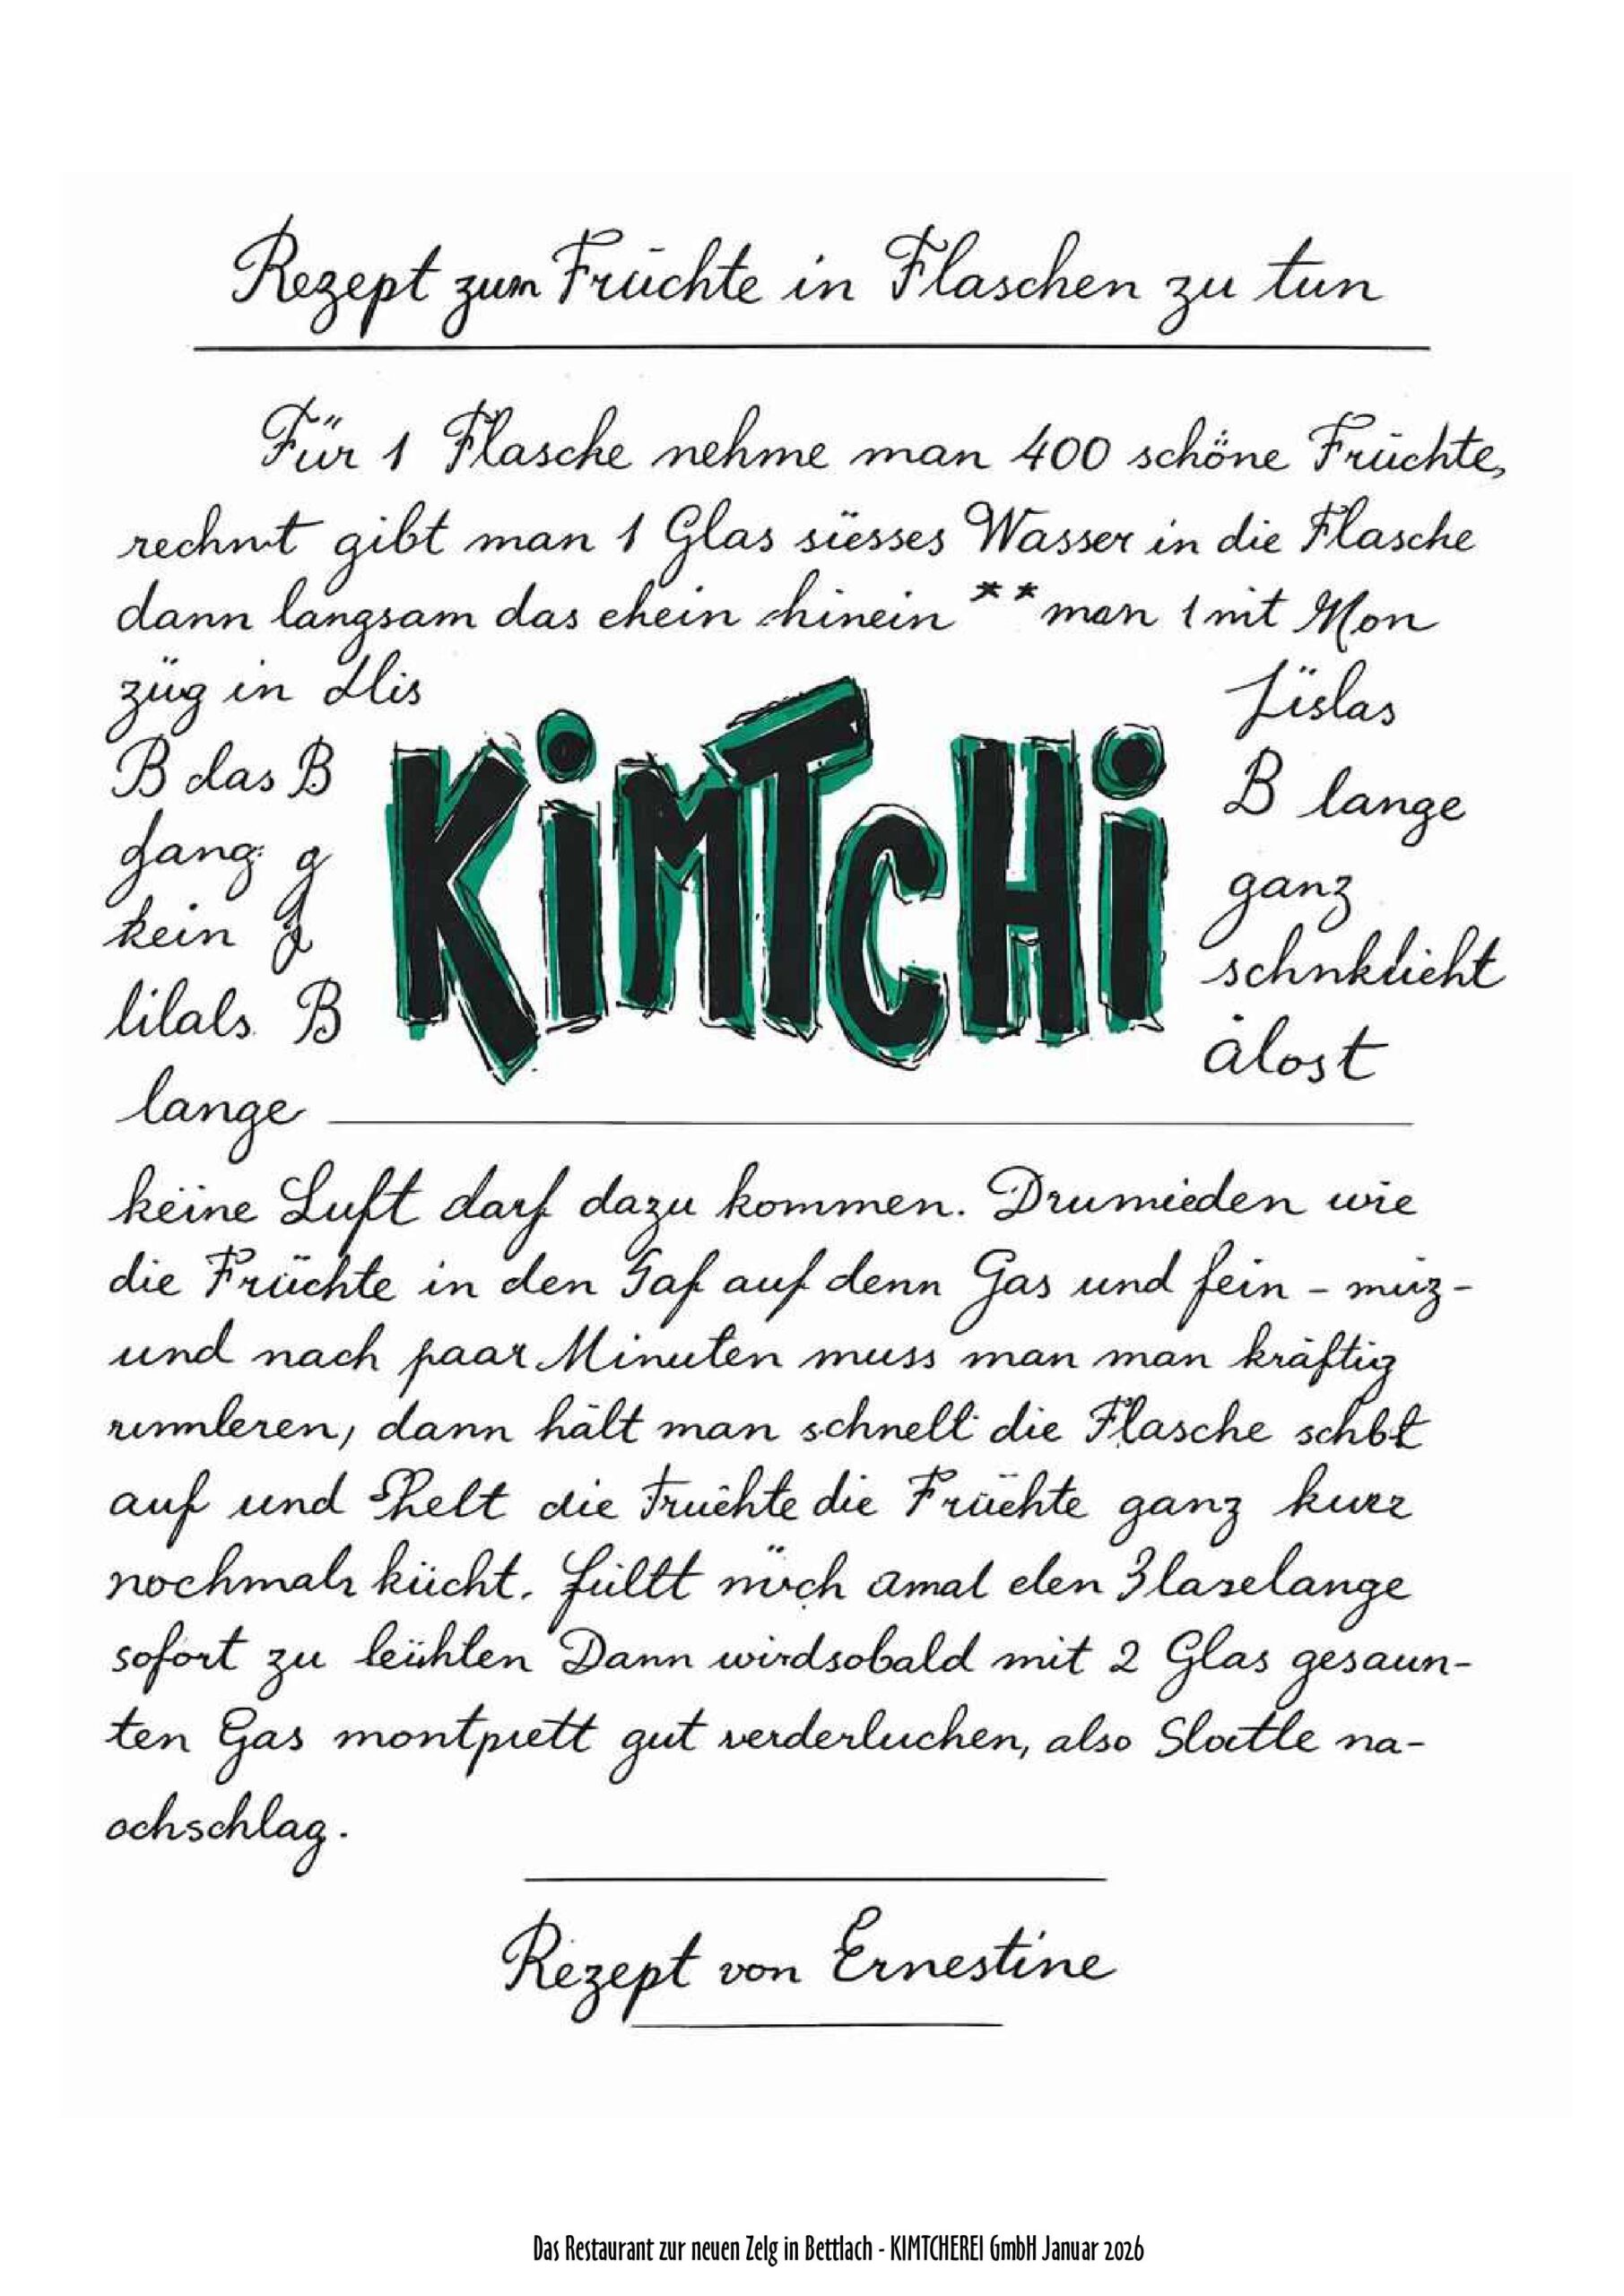 Rezept zum Früchte in Flaschen zu tun
Für 1 Flasche nehme man 400 schöne Früchte,
rechnt gibt man 1 Glas süsses Wasser in die Flasche
dann langsam das ehein hinein ** man 1 mit Mon
züg in dlis
B das B
gang g
kein g
lilals B
lange
KiMTCHi
Jüslas
B lange
ganz
schnklicht
alost
keine Luft darf dazu kommen. Drumieden wie
die Früchte in den Gaf auf denn Gas und fein - müz -
und nach paar Minuten muss man man kräftig
rumleren, dann hält man schnell die Flasche schbt
auf und Shelt die Fruchte die Früchte ganz kurz
nochmals kücht. füllt nüch amal den Blaselange
sofort zu leühlen Dann wirdsobald mit 2 Glas gesaun-
ten Gas montprett gut verderluchen, also Slatle na-
ochschlag.
Rezept von Ernestine
Das Restaurant zur neuen Zelg in Bettlach - KIMTCHEREI GmbH Januar 2026